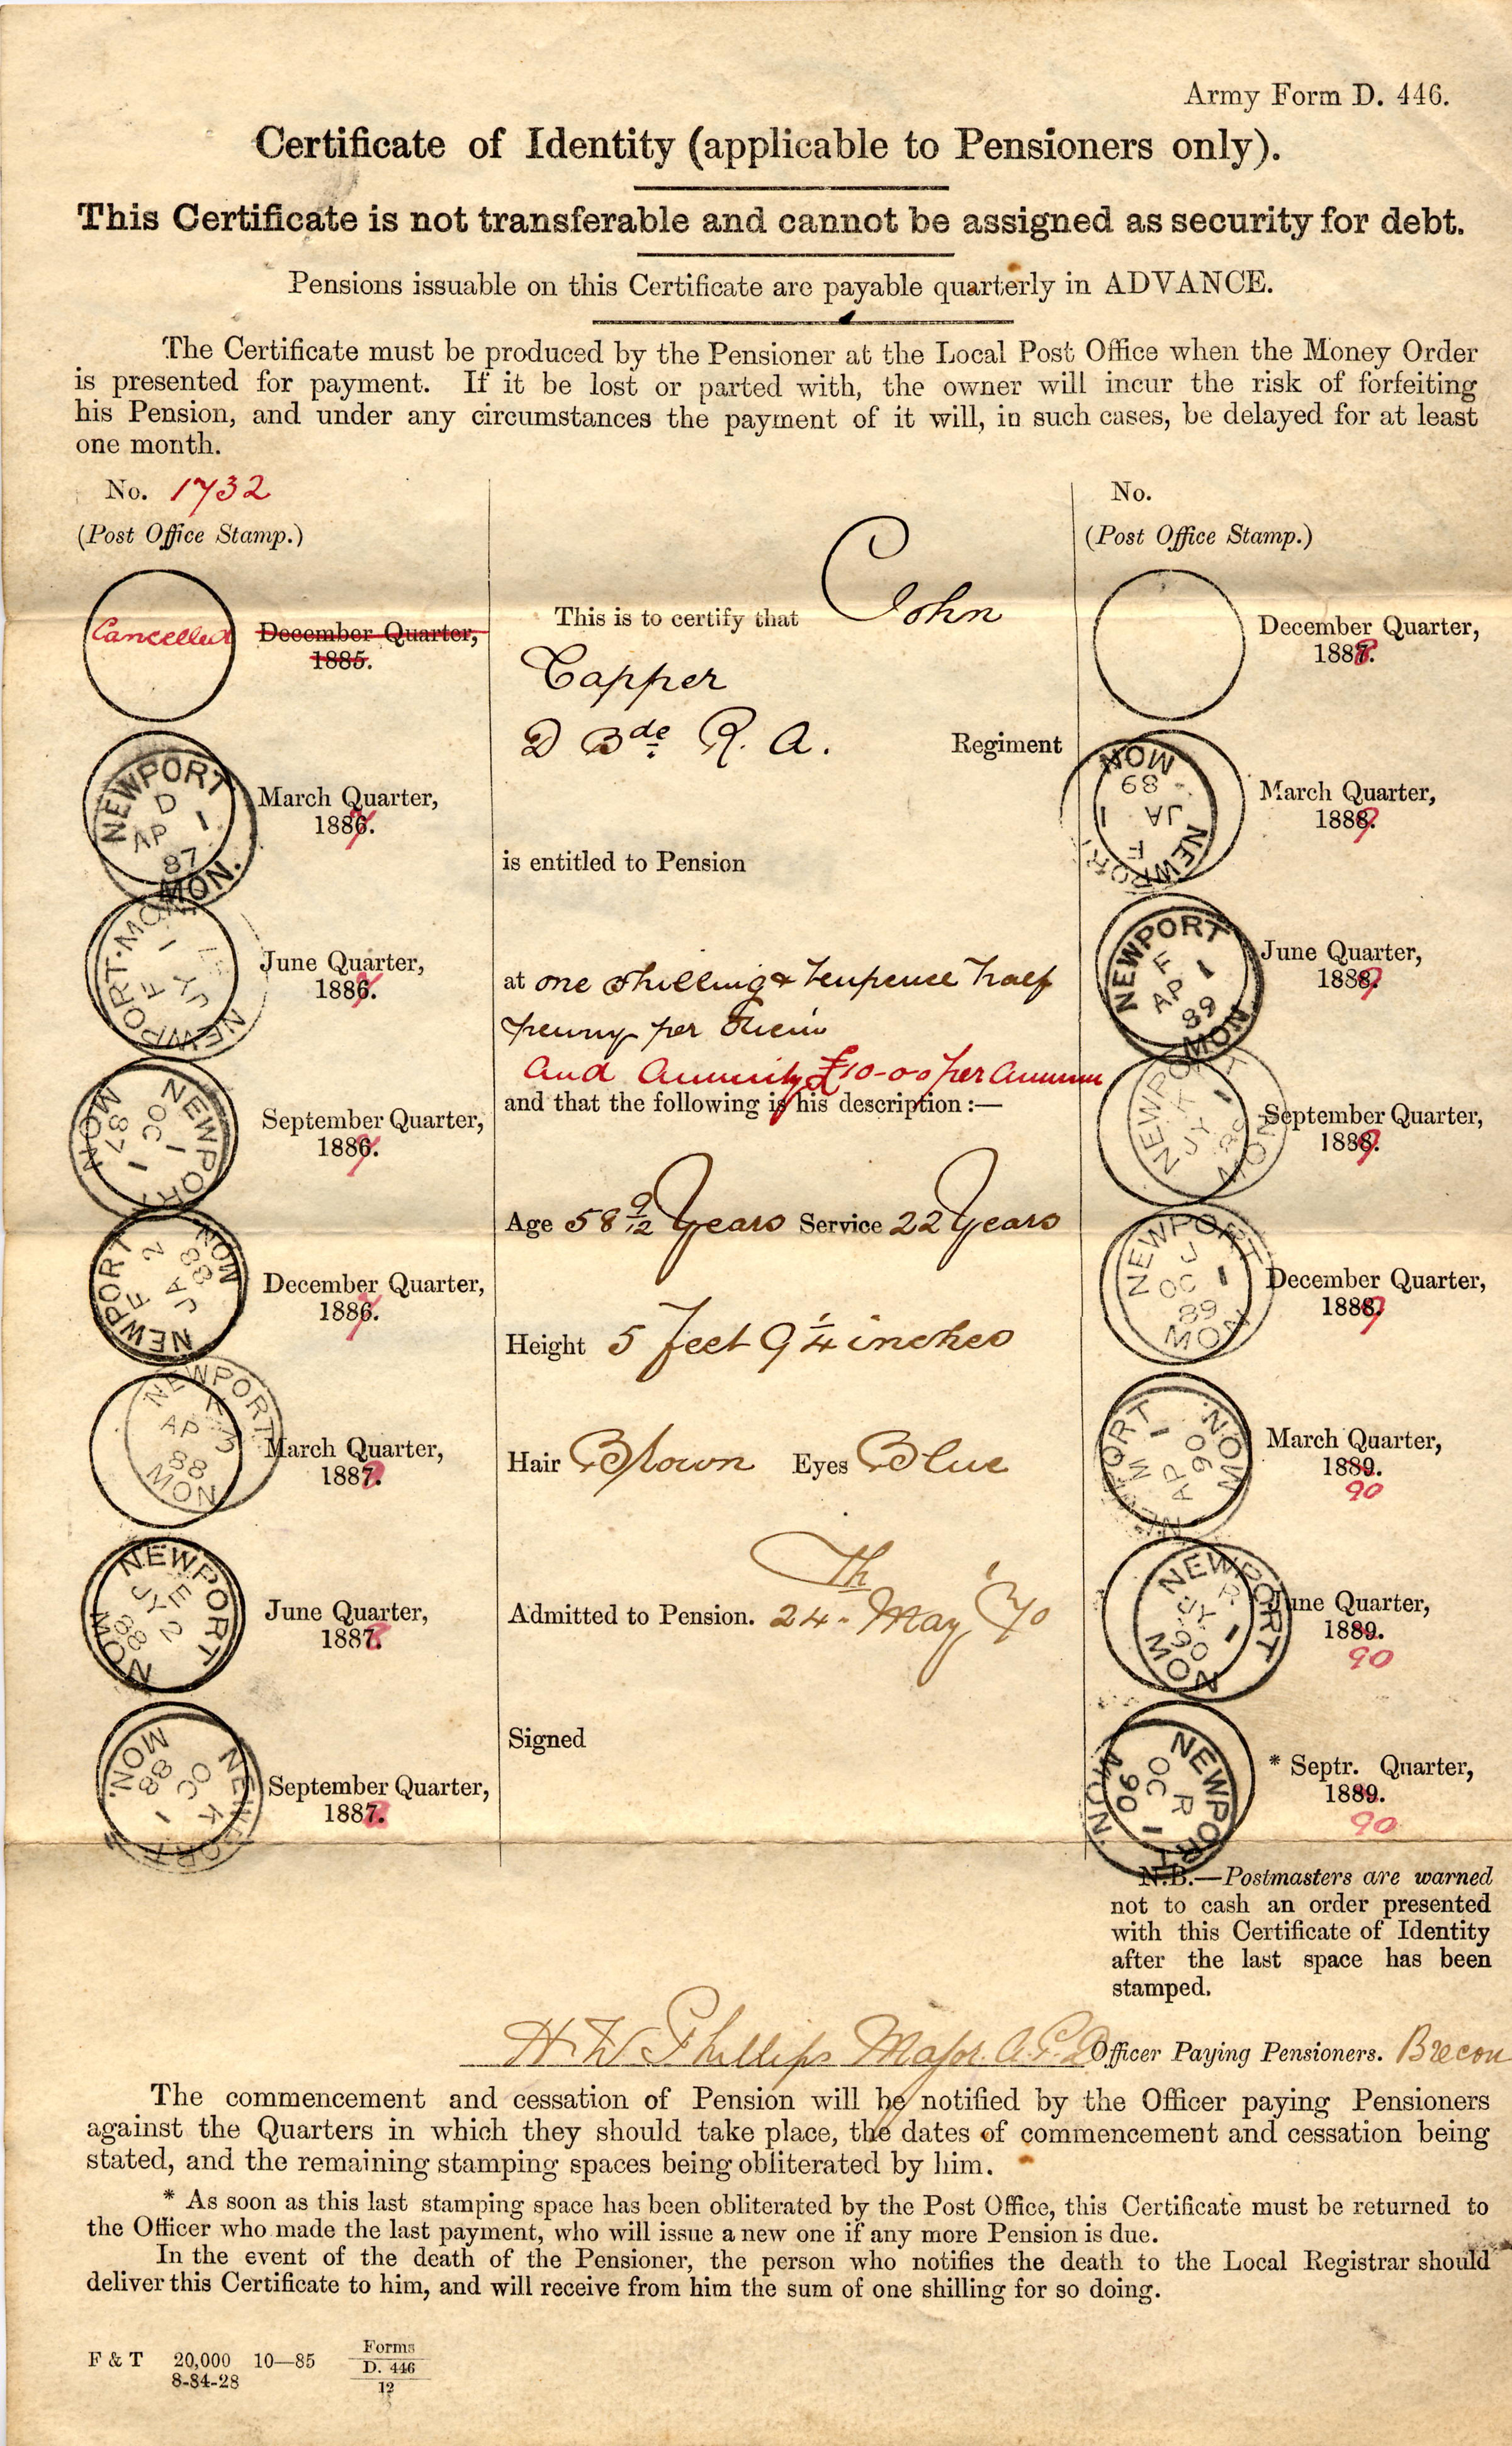 Army Form D. 446.
Certificate of Identity (applicable to Pensioners only).
This Certificate is not transferable and cannot be assigned as security for debt.
Pensions issuable on this Certificate are payable quarterly in ADVANCE.
The Certificate must be produced by the Pensioner at the Local Post Office when the Money Order
is presented for payment. If it be lost or parted with, the owner will incur the risk of forfeiting
his Pension, and under any circumstances the payment of it will, in such cases, be delayed for at least
one month.
No. 1732
(Post Office Stamp.)
Cancelled December Quarter,
1885.
NEWPORT MON. D AP 1 87
March Quarter,
1886. 7
NEWPORT·MON F 1 JY
June Quarter,
1886. 7
NEWPORT MON OC 1 87
September Quarter,
1886. 7
NEWPORT MON F JA 2 88
December Quarter,
1886. 7
NEWPORT MON AP 3 88
March Quarter,
1887. 8
NEWPORT MON E JY 2 88
June Quarter,
1887. 8
NEWPORT MON. K OC 1 88
September Quarter,
1887. 8
This is to certify that John
Capper
D Bde R. A. Regiment
is entitled to Pension
at one shilling & tenpence half
penny per diem
And Annuity £10-0-0 per Annum
and that the following is his description :—
Age 58 9/12 Years Service 22 Years
Height 5 feet 9 1/4 inches
Hair Brown Eyes Blue
Admitted to Pension. 24th May '70
Signed
No.
(Post Office Stamp.)
December Quarter,
1887. 8
NEWPORT MON F JA 1 89
March Quarter,
1888. 9
NEWPORT MON F AP 1 89
June Quarter,
1888. 9
NEWPORT MON K JY 1 89
September Quarter,
1888. 9
NEWPORT MON J OC 1 89
December Quarter,
1888. 9
NEWPORT MON. M AP 1 90
March Quarter,
1889.
90
NEWPORT MON R JY 1 90
June Quarter,
1889.
90
NEWPORT MON. R OC 1 90
* Septr. Quarter,
1889.
90
N.B.—Postmasters are warned
not to cash an order presented
with this Certificate of Identity
after the last space has been
stamped.
H W Phillips Major A.P.D Officer Paying Pensioners. Brecon
The commencement and cessation of Pension will be notified by the Officer paying Pensioners
against the Quarters in which they should take place, the dates of commencement and cessation being
stated, and the remaining stamping spaces being obliterated by him.
* As soon as this last stamping space has been obliterated by the Post Office, this Certificate must be returned to
the Officer who made the last payment, who will issue a new one if any more Pension is due.
In the event of the death of the Pensioner, the person who notifies the death to the Local Registrar should
deliver this Certificate to him, and will receive from him the sum of one shilling for so doing.
F & T 20,000 10—85 Forms
8-84-28 D. 446
12